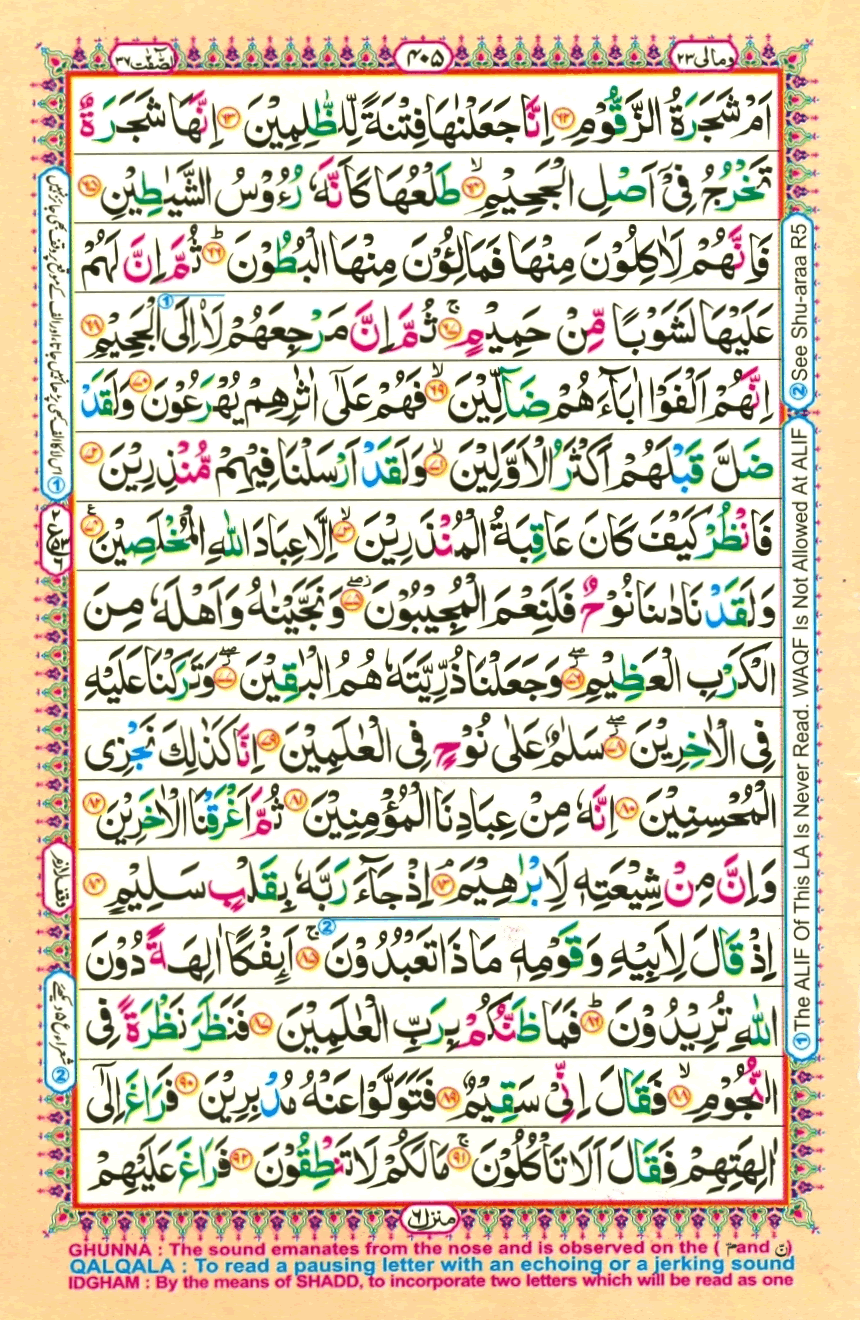 ومالی ٢٣
٤٠٥
الصّٰفّٰت ٣٧
اَمۡ شَجَرَةُ الزَّقُّوۡمِ ﴿۶۲﴾ اِنَّا جَعَلۡنٰهَا فِتۡنَةً لِّلظّٰلِمِيۡنَ ﴿۶۳﴾ اِنَّهَا شَجَرَةٌ
تَخۡرُجُ فِىۡۤ اَصۡلِ الۡجَحِيۡمِۙ ﴿۶۴﴾ طَلۡعُهَا كَاَنَّهٗ رُءُوۡسُ الشَّيٰطِيۡنِ ﴿۶۵﴾
فَاِنَّهُمۡ لَاٰكِلُوۡنَ مِنۡهَا فَمَالِـُٔوۡنَ مِنۡهَا الۡبُطُوۡنَؕ ﴿۶۶﴾ ثُمَّ اِنَّ لَهُمۡ
عَلَيۡهَا لَشَوۡبًا مِّنۡ حَمِيۡمٍۚ ﴿۶۷﴾ ثُمَّ اِنَّ مَرۡجِعَهُمۡ لَا۟اِلَى الۡجَحِيۡمِ ﴿۶۸﴾
اِنَّهُمۡ اَلۡفَوۡا اٰبَآءَهُمۡ ضَآلِّيۡنَۙ ﴿۶۹﴾ فَهُمۡ عَلٰٓى اٰثٰرِهِمۡ يُهۡرَعُوۡنَ ﴿۷۰﴾ وَلَقَدۡ
ضَلَّ قَبۡلَهُمۡ اَكۡثَرُ الۡاَوَّلِيۡنَۙ ﴿۷۱﴾ وَلَقَدۡ اَرۡسَلۡنَا فِيۡهِمۡ مُّنۡذِرِيۡنَ ﴿۷۲﴾
فَانْظُرۡ كَيۡفَ كَانَ عَاقِبَةُ الۡمُنۡذَرِيۡنَۙ ﴿۷۳﴾ اِلَّا عِبَادَ اللّٰهِ الۡمُخۡلَصِيۡنَ ﴿۷۴﴾
وَلَقَدۡ نَادٰٮنَا نُوۡحٌ فَلَنِعۡمَ الۡمُجِيۡبُوۡنَۖ ﴿۷۵﴾ وَنَجَّيۡنٰهُ وَاَهۡلَهٗ مِنَ
الۡكَرۡبِ الۡعَظِيۡمِۖ ﴿۷۶﴾ وَجَعَلۡنَا ذُرِّيَّتَهٗ هُمُ الۡبٰقِيۡنَۖ ﴿۷۷﴾ وَتَرَكۡنَا عَلَيۡهِ
فِى الۡاٰخِرِيۡنَۖ ﴿۷۸﴾ سَلٰمٌ عَلٰى نُوۡحٍ فِى الۡعٰلَمِيۡنَ ﴿۷۹﴾ اِنَّا كَذٰلِكَ نَجۡزِى
الۡمُحۡسِنِيۡنَ ﴿۸۰﴾ اِنَّهٗ مِنۡ عِبَادِنَا الۡمُؤۡمِنِيۡنَ ﴿۸۱﴾ ثُمَّ اَغۡرَقۡنَا الۡاٰخَرِيۡنَ ﴿۸۲﴾
وَاِنَّ مِنۡ شِيۡعَتِهٖ لَاِبۡرٰهِيۡمَۘ ﴿۸۳﴾ اِذۡ جَآءَ رَبَّهٗ بِقَلۡبٍ سَلِيۡمٍ ﴿۸۴﴾
اِذۡ قَالَ لِاَبِيۡهِ وَقَوۡمِهٖ مَاذَا تَعۡبُدُوۡنَۚ ﴿۸۵﴾ اَٮِٕفۡكًا اٰلِهَةً دُوۡنَ
اللّٰهِ تُرِيۡدُوۡنَؕ ﴿۸۶﴾ فَمَا ظَنُّكُمۡ بِرَبِّ الۡعٰلَمِيۡنَ ﴿۸۷﴾ فَنَظَرَ نَظۡرَةً فِى
النُّجُوۡمِۙ ﴿۸۸﴾ فَقَالَ اِنِّىۡ سَقِيۡمٌ ﴿۸۹﴾ فَتَوَلَّوۡا عَنۡهُ مُدۡبِرِيۡنَ ﴿۹۰﴾ فَرَاغَ اِلٰٓى
اٰلِهَتِهِمۡ فَقَالَ اَلَا تَاۡكُلُوۡنَۚ ﴿۹۱﴾ مَا لَـكُمۡ لَا تَنۡطِقُوۡنَ ﴿۹۲﴾ فَرَاغَ عَلَيۡهِمۡ
منزل ٦
② See Shu-araa R5
① The ALIF Of This LA Is Never Read. WAQF Is Not Allowed At ALIF
وقف لازم
GHUNNA : The sound emanates from the nose and is observed on the ( مّ and نّ )
QALQALA : To read a pausing letter with an echoing or a jerking sound
IDGHAM : By the means of SHADD, to incorporate two letters which will be read as one